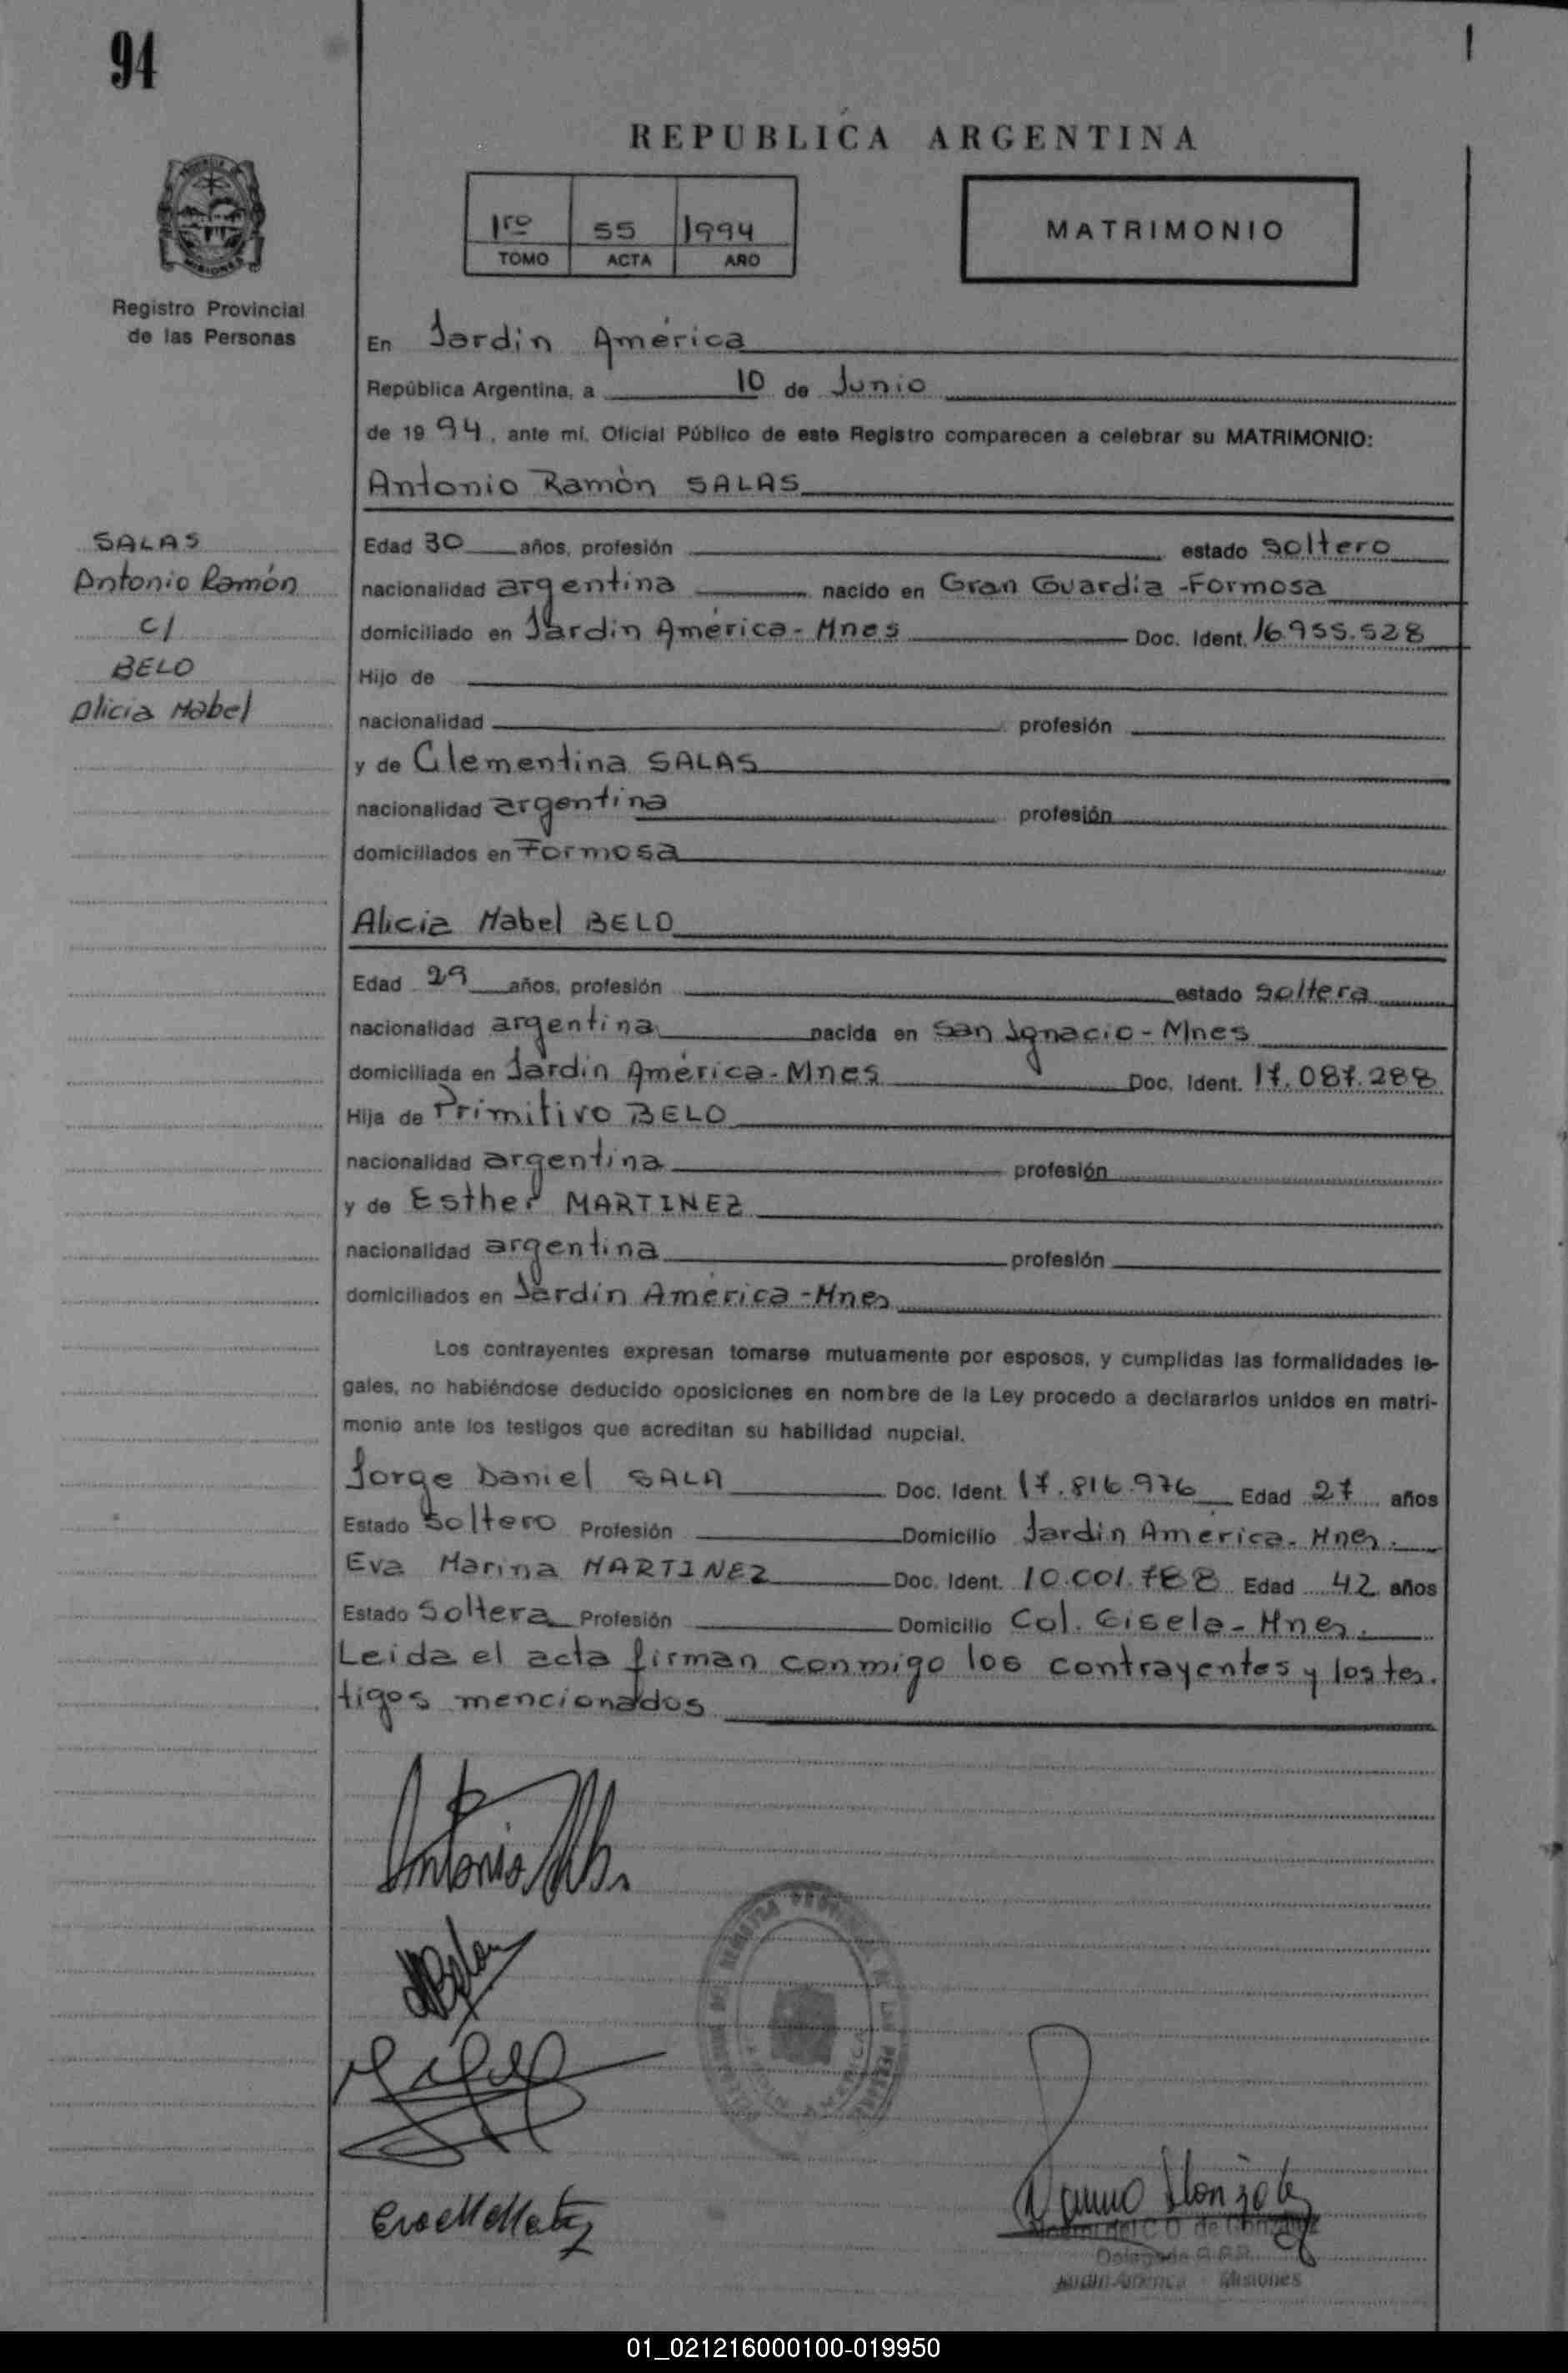 94
REPUBLICA ARGENTINA
1ro 55 1994
TOMO ACTA AÑO
MATRIMONIO
Registro Provincial
de las Personas
En Jardín América
República Argentina, a 10 de Junio
de 1994, ante mí, Oficial Público de este Registro comparecen a celebrar su MATRIMONIO:
Antonio Ramón SALAS
SALAS
Antonio Ramón
c/
BELO
Alicia Mabel
Edad 30 años, profesión estado soltero
nacionalidad argentina nacido en Gran Guardia - Formosa
domiciliado en Jardín América - Mnes Doc. Ident. 16.955.528
Hijo de
nacionalidad profesión
y de Clementina SALAS
nacionalidad argentina profesión
domiciliados en Formosa
Alicia Mabel BELO
Edad 29 años, profesión estado soltera
nacionalidad argentina nacida en San Ignacio - Mnes
domiciliada en Jardín América - Mnes Doc. Ident. 17.087.288
Hija de Primitivo BELO
nacionalidad argentina profesión
y de Esther MARTINEZ
nacionalidad argentina profesión
domiciliados en Jardín América - Mnes
Los contrayentes expresan tomarse mutuamente por esposos, y cumplidas las formalidades le-
gales, no habiéndose deducido oposiciones en nombre de la Ley procedo a declararlos unidos en matri-
monio ante los testigos que acreditan su habilidad nupcial.
Jorge Daniel SALA Doc. Ident. 17.816.976 Edad 27 años
Estado Soltero Profesión Domicilio Jardín América - Mnes.
Eva Marina MARTINEZ Doc. Ident. 10.001.788 Edad 42 años
Estado Soltera Profesión Domicilio Col. Gisela - Mnes.
Leída el acta firman conmigo los contrayentes y los tes.
tigos mencionados
Antonio
de González
Delegada
Jardín América - Misiones
01_021216000100-019950